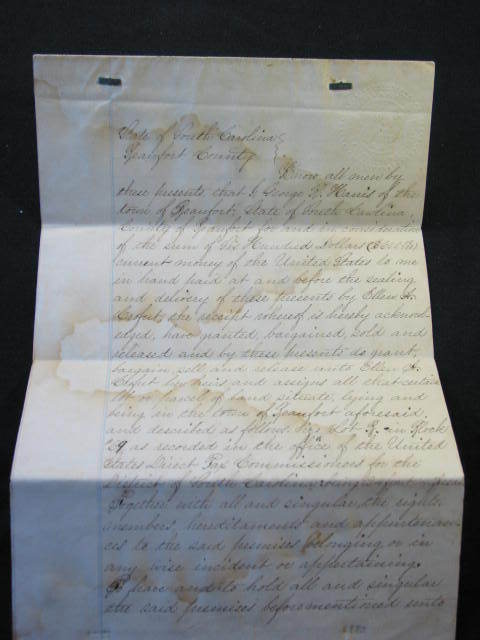 State of South Carolina
Beaufort County
Know all men by
these presents, that I George R. of the
town of Beaufort, State of South Carolina,
County of Beaufort for and in consideration
of the sum of Six Hundred Dollars
current money of the United States to me
in hand paid at and before the sealing
and delivery of these presents by Ellen A.
the receipt whereof is hereby acknowl-
edged, have granted, bargained, sold and
released and by these presents do grant,
bargain, sell, and release unto Ellen A.
her heirs and assigns all that certain
lot or parcel of land situate, lying and
being in the town of Beaufort aforesaid
and described as follows Lot in Block
29 as recorded in the office of the United
States Direct Tax Commissioners for the
District of South Carolina,
Together with all and singular, the rights,
members, hereditaments and appurtenan-
ces to the said premises belonging, or in
any wise incident or appertaining.
To have and to hold all and singular
the said premises before mentioned unto